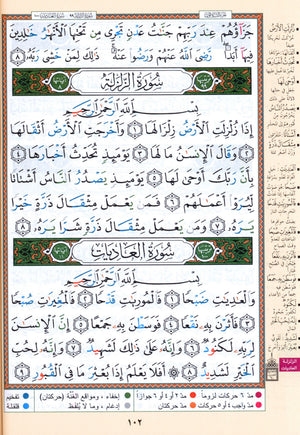 جَزَآؤُهُمْ عِندَ رَبِّهِمْ جَنَّٰتُ عَدْنٍ تَجْرِى مِن تَحْتِهَا ٱلْأَنْهَٰرُ خَٰلِدِينَ
فِيهَآ أَبَدًا رَّضِىَ ٱللَّهُ عَنْهُمْ وَرَضُوا۟ عَنْهُ ذَٰلِكَ لِمَنْ خَشِىَ رَبَّهُۥ ﴿٨﴾
سُورَةُ الزَّلْزَلَةِ
بِسْمِ ٱللَّهِ ٱلرَّحْمَٰنِ ٱلرَّحِيمِ
إِذَا زُلْزِلَتِ ٱلْأَرْضُ زِلْزَالَهَا ﴿١﴾ وَأَخْرَجَتِ ٱلْأَرْضُ أَثْقَالَهَا
﴿٢﴾ وَقَالَ ٱلْإِنسَٰنُ مَا لَهَا ﴿٣﴾ يَوْمَئِذٍ تُحَدِّثُ أَخْبَارَهَا ﴿٤﴾
بِأَنَّ رَبَّكَ أَوْحَىٰ لَهَا ﴿٥﴾ يَوْمَئِذٍ يَصْدُرُ ٱلنَّاسُ أَشْتَاتًا
لِّيُرَوْا۟ أَعْمَٰلَهُمْ ﴿٦﴾ فَمَن يَعْمَلْ مِثْقَالَ ذَرَّةٍ خَيْرًا
يَرَهُۥ ﴿٧﴾ وَمَن يَعْمَلْ مِثْقَالَ ذَرَّةٍ شَرًّا يَرَهُۥ ﴿٨﴾
سُورَةُ الْعَادِيَاتِ
بِسْمِ ٱللَّهِ ٱلرَّحْمَٰنِ ٱلرَّحِيمِ
وَٱلْعَٰدِيَٰتِ ضَبْحًا ﴿١﴾ فَٱلْمُورِيَٰتِ قَدْحًا ﴿٢﴾ فَٱلْمُغِيرَٰتِ صُبْحًا
﴿٣﴾ فَأَثَرْنَ بِهِۦ نَقْعًا ﴿٤﴾ فَوَسَطْنَ بِهِۦ جَمْعًا ﴿٥﴾ إِنَّ ٱلْإِنسَٰنَ
لِرَبِّهِۦ لَكَنُودٌ ﴿٦﴾ وَإِنَّهُۥ عَلَىٰ ذَٰلِكَ لَشَهِيدٌ ﴿٧﴾ وَإِنَّهُۥ لِحُبِّ
ٱلْخَيْرِ لَشَدِيدٌ ﴿٨﴾ أَفَلَا يَعْلَمُ إِذَا بُعْثِرَ مَا فِى ٱلْقُبُورِ ﴿٩﴾
١٠٢
مدّ ٦ حركات لزوماً مدّ ٢ أو ٤ أو ٦ جوازاً
مدّ واجب ٤ أو ٥ حركات مدّ حركتان
إخفاء، ومواقع الغُنَّة (حركتان)
إدغام، وما لا يُلفَظ
تفخيم
قلقلة